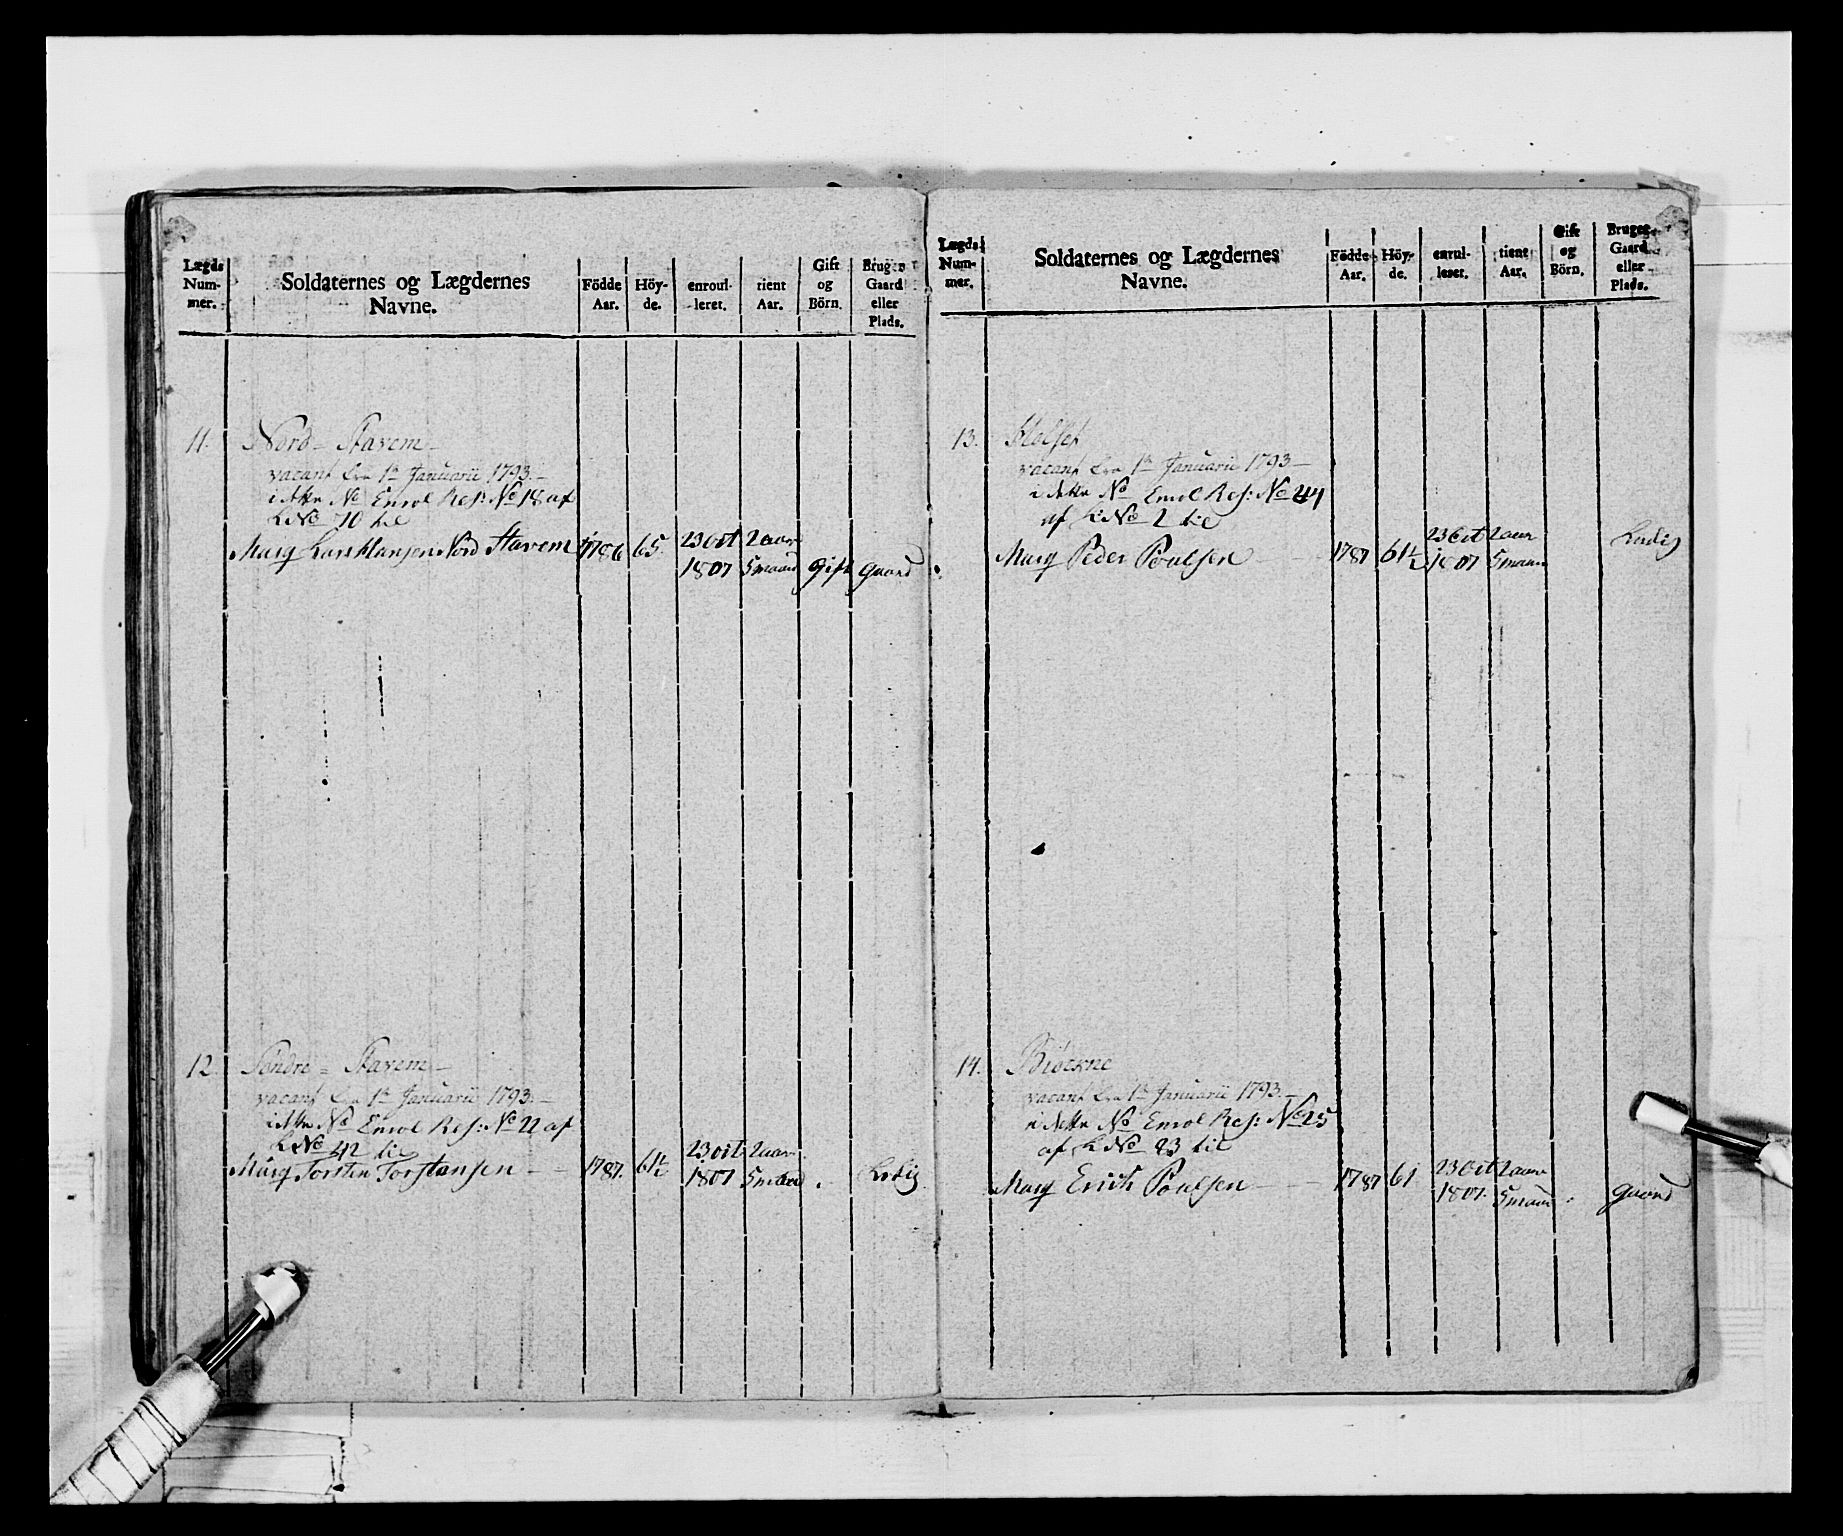 Lægds
Num-
mer.
Soldaternes og Lægdernes
Navne.
Födde
Aar.
Höy-
de.
enroul-
leret.
tient
Aar.
Gift
og
Börn.
Bruger
Gaard
eller
Plads.
11. Nord - Stavem -
vacant fra 1te Januarii 1793. -
i dette No Enrol Res: No 18 af
L No 70 til
Musq Lars Hansen Nord Stavem 1786 65 23 oct 2 aar
1807 5 maand gift gaard
12. Söndre = Stavem -
vacant fra 1te Januarii 1793. -
i dette No Enrol Res: No 22 af
L No 42 til
Musq Torsten Torstensen - - 1787. 61½ 23 oct 2 aar
1807 5 maand . Ledig
Lægds
Num-
mer.
Soldaternes og Lægdernes
Navne.
Födde
Aar.
Höy-
de.
enrul-
leret.
tient
Aar.
Gift
og
Börn.
Bruger
Gaard
eller
Plads.
13. Holset
vacant fra 1te Januarii 1793 -
i dette No Enrol Res: No 44
af L No 2 til
Musq Peder Poulsen 1787 61½ 23 Oct 2 aar Ledig
1807 5 maan
14. Biöerne
vacant fra 1te Januarii 1793. -
i dette No Enrol Res: No 25
af L No 23 til
Musq Erich Poulsen - - 1787 61 23 Oct 2 aar
1807. 5 maan . gaard